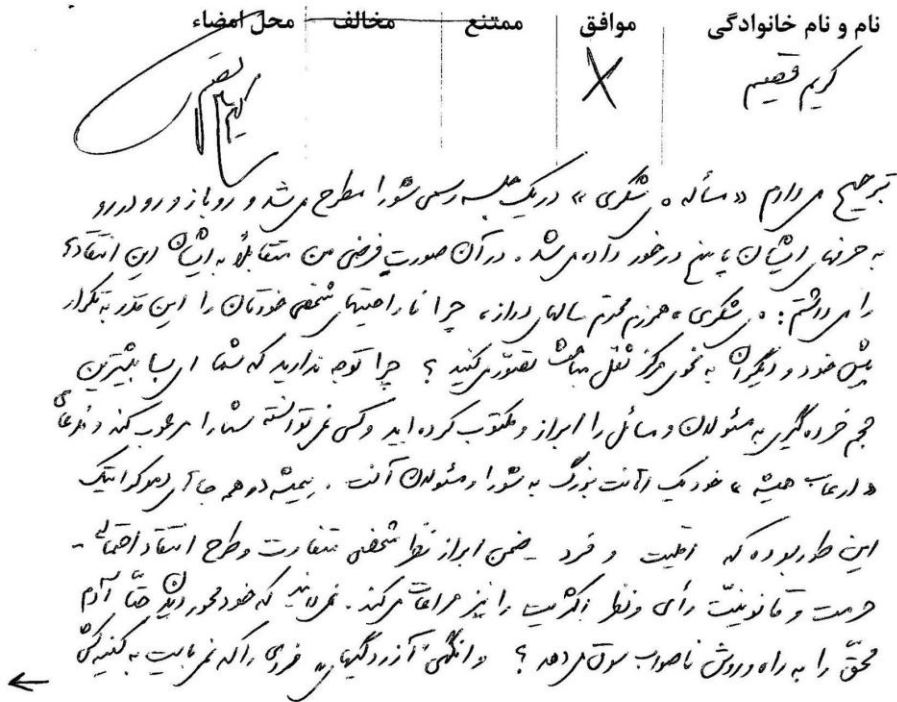 نام و نام خانوادگی موافق ممتنع مخالف محل امضاء
کریم قصیم
ترجیح می دادم «مسأله م. شکری» در یک جلسه رسمی شورا مطرح می شد و روباز و رودررو
به حرفهای ایشان پاسخ درخور داده می شد. در آن صورت فرضی من متقابلاً به ایشان این انتقاد
را می داشتم: م. شکری، همرزم محترم سالهای دراز، چرا ناراحتیهای شخصی خودتان را این قدر به تکرار
پیش خود و دیگران به نحوی مرکز ثقل مباحث تصوّر می کنید؟ چرا توجه ندارید که شما ای بسا بیشترین
حجم خرده گیری به مسئولان و مسائل را ابراز و مکتوب کرده اید و کسی نمی توانسته شما را مرعوب کند و ادعای
«ارعاب همیشه» خود یک اهانت بزرگ به شورا و مسئولان آنست. همیشه در همه جای دموکراتیک
این طور بوده که اقلیت و فرد - ضمن ابراز نظر شخصی متفاوت و طرح انتقاد احتمالی -
حرمت و قانونیّت رأی و نظر اکثریت را نیز مراعات می کند. نمی دانید که خودمحوردیدن حتّا آدم
محقّ را به راه و روش ناصواب سوق می دهد؟ وانگهی، آزردگیهای فردی را که نمی بایست به کنیه کشی